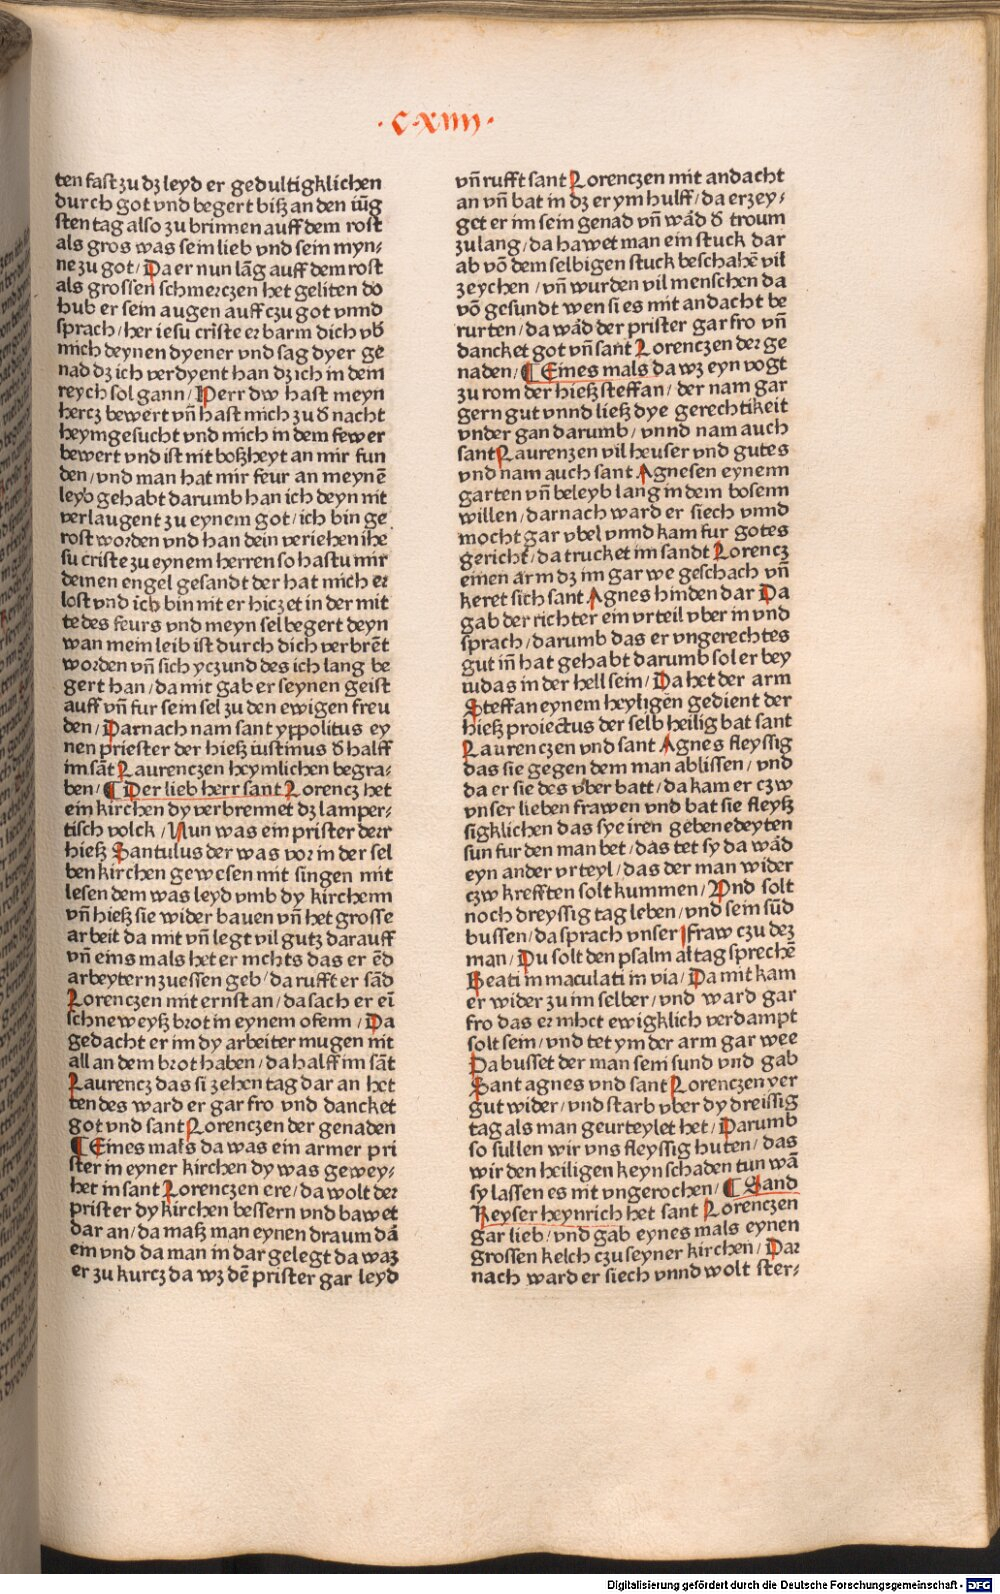 ·C·XIIII·
ten fast zu dz leyd er gedultigklichen
durch got vnd begert biß an den iũg
sten tag also zu brinnen auff dem rost
als gros was sein lieb vnd sein myn-
ne zu got/ Da er nun lãg auff dem rost
als grossen schmerczen het geliten do
hub er sein augen auff czu got vnnd
sprach/ her iesu criste erbarm dich vb̃
mich deynen dyener vnd sag dyer ge
nad dz ich verdyent han dz ich in dem
reych sol gann/ Herr dw hast meyn
hercz bewert vñ hast mich zu d̃ nacht
heymgesucht vnd mich in dem fewer
bewert vnd ist nit boßheyt an mir fun
den/ vnd man hat mir feur an meynẽ
leyb gehabt darumb han ich deyn nit
verlaugent zu eynem got/ ich bin ge
rost worden vnd han dein veriehen ihe
su criste zu eynem herren so hastu mir
deinen engel gesandt der hat mich er
lost vnd ich bin nit erhiczet in der mit
te des feurs vnd meyn sel begert deyn
wan mein leib ist durch dich verbrẽt
worden vñ sich yczund des ich lang be
gert han/ da mit gab er seynen geist
auff vñ fur sein sel zu den ewigen freu
den/ Darnach nam sant yppolitus ey
nen priester der hieß iustinus d̃ halff
im sãt Laurenczen heymlichen begra-
ben/ ¶ Der lieb herr sant Lorencz het
ein kirchen dy verbrennet dz lamper-
tisch volck/ Nun was ein prister derr
hieß Santulus der was vor in der sel
ben kirchen gewesen mit singen mit
lesen dem was leyd vmb dy kirchenn
vñ hieß sie wider bauen vñ het grosse
arbeit da mit vñ legt vil gutz darauff
vñ eins mals het er nichts das er ẽd
arbeytern zuessen geb/ da rufft er sãd
Lorenczen mit ernst an/ da sach er eĩ
schneweyß brot in eynem ofenn/ Da
gedacht er im dy arbeiter mugen nit
all an dem brot haben/ da halff im sãt
Laurencz das si zehen tag dar an het
ten des ward er gar fro vnd dancket
got vnd sant Lorenczen der genaden
¶ Eines mals da was ein armer pri
ster in eyner kirchen dy was gewey-
het in sant Lorenczen ere/ da wolt der
prister dy kirchen bessern vnd bawet
dar an/ da maß man eynen draum dã
em vnd da man in dar gelegt da waz
er zu kurcz da wz dẽ prister gar leyd
vñ rufft sant Lorenczen mit andacht
an vñ bat in dz er ym hulff/ da erzey-
get er im sein genad vñ wãd d̃ troum
zu lang/ da hawet man ein stuck dar
ab võ dem selbigen stuck beschahẽ vil
zeychen/ vñ wurden vil menschen da
võ gesundt wen si es mit andacht be
rurten/ da wãd der prister gar fro vñ
dancket got vñ sant Lorenczen der ge
naden/ ¶ Eines mals da wz eyn vogt
zu rom der hieß steffan/ der nam gar
gern gut vnnd ließ dye gerechtikeit
vnder gan darumb/ vnnd nam auch
sant Laurenzen vil heuser vnd gutes
vnd nam auch sant Agnesen eynenn
garten vñ beleyb lang in dem bosenn
willen/ darnach ward er siech vnnd
mocht gar vbel vnnd kam fur gotes
gericht/ da trucket im sandt Lorencz
einen arm dz im gar we geschach vñ
keret sich sant Agnes hinden dar Da
gab der richter ein vrteil vber in vnd
sprach/ darumb das er vngerechtes
gut iñ hat gehabt darumb sol er bey
iudas in der hell sein/ Da het der arm
Steffan eynem heyligen gedient der
hieß proiectus der selb heilig bat sant
Laurenczen vnd sant Agnes fleyssig
das sie gegen dem man ablissen/ vnd
da er sie des vber batt/ da kam er czw
vnser lieben frawen vnd bat sie fleyß
sigklichen das sye iren gebenedeyten
sun fur den man bet/ das tet sy da wãd
eyn ander vrteyl/ das der man wider
czw krefften solt kummen/ Vnd solt
noch dreyssig tag leben/ vnd sein sũd
bussen/ da sprach vnser fraw czu dez
man/ Du solt den psalm al tag sprechẽ
Beati immaculati in via/ Da mit kam
er wider zu im selber/ vnd ward gar
fro das er nihct ewigklich verdampt
solt sein/ vnd tet ym der arm gar wee
Da busset der man sein sund vnd gab
Sant agnes vnd sant Lorenczen yer
gut wider/ vnd starb vber dy dreissig
tag als man geurteylet het/ Darumb
so sullen wir vns fleyssig huten/ das
wir den heiligen keyn schaden tun wã
sy lassen es nit vngerochen/ ¶ Sand
Keyser heynrich het sant Lorenczen
gar lieb/ vnd gab eynes mals eynen
grossen kelch czu seyner kirchen/ Dar
nach ward er siech vnnd wolt ster-
Digitalisierung gefördert durch die Deutsche Forschungsgemeinschaft - DFG